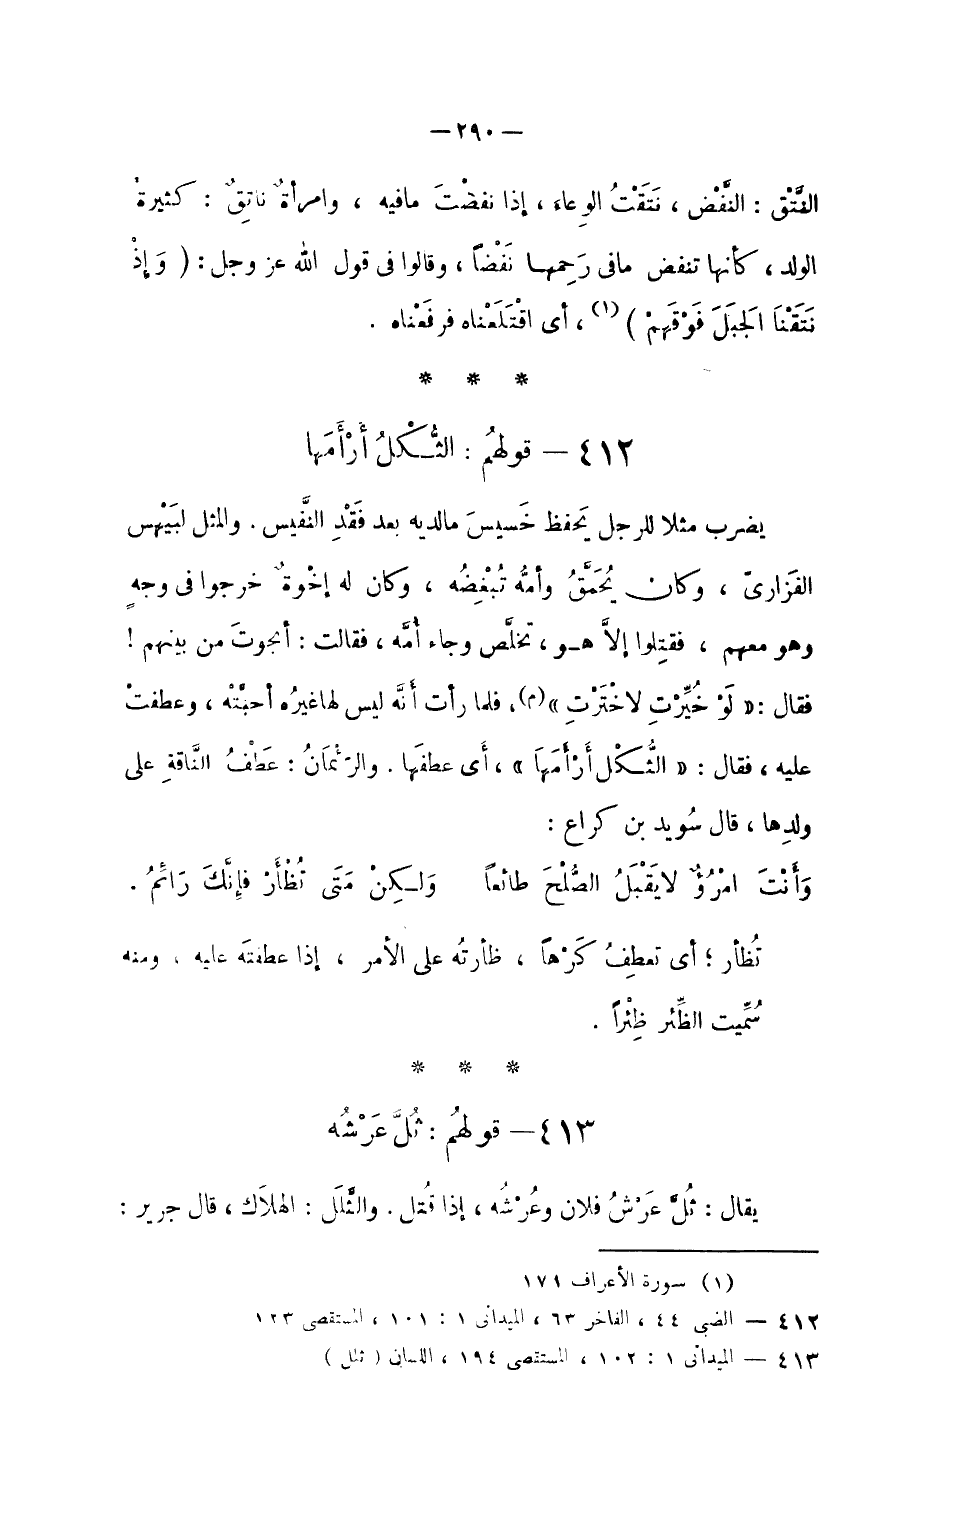 — ٢٩٠ —
الفَتْق : النَّفْض ، نَتَقْتُ الوِعاء ، إذا نفضْتَ مافيه ، وامرأةٌ ناتِقٌ : كثيرةُ
الولد ، كأنها تنفض مافى رَحِمها نَفْضاً ، وقالوا فى قول الله عز وجل : ( وَإذْ
نَتَقْنَا الجَبَلَ فَوْقَهِمْ ) (١) ، أى اقْتَلَعْناه فرفَعْناه .
* * *
٤١٢ — قولهُم : الثُّكْلُ أَرْأَمَها
يضرب مثلا للرجل يَحفظ خَسيسَ مالديه بعد فَقْدِ النَّفيس . والمثل لبَيْهس
الفَزارىّ ، وكان يُحَمَّقُ وأمُّه تُبْغِضُه ، وكان له إخْوةٌ خرجوا فى وجهٍ
وهو معهم ، فقتِلوا إلاَّ هو ، تخلَّص وجاء أُمَّه ، فقالت : أنجوتَ من بينهم !
فقال : « لَوْ خُيِّرْتِ لاخْتَرْتِ » (٢) ، فلما رأت أنَّه ليس لهاغيرُه أحبَّتْه ، وعطفتْ
عليه ، فقال : « الثُّكْل أَرْأَمَهَا » ، أى عطفَها . والرِّئْمانُ : عَطْفُ النَّاقةِ على
ولدِها ، قال سُويد بن كراع :
وَأَنْتَ امْرُؤٌ لايَقْبَلُ الصُّلْحَ طائعاً وَلـكِنْ مَتَى تُظْأَرْ فإِنَّكَ رَائمُ .
تُظأر ؛ أى تعطِفُ كَرْهاً ، ظأرتُه على الأمر ، إذا عطفتَه عليه ، ومنه
سُمِّيت الظِّئر ظِئْراً .
* * *
٤١٣ — قولهُم : ثُلَّ عَرْشُه
يقال : ثُلَّ عَرْشُ فلان وعُرْشُه ، إذا قُتل . والثَّلَل : الهلاَك ، قال جرير :
(١) سورة الأعراف ١٧١
٤١٢ — الضبى ٤٤ ، الفاخر ٦٣ ، الميدانى ١ : ١٠١ ، المستقصى ١٢٣
٤١٣ — الميدانى ١ : ١٠٢ ، المستقصى ١٩٤ ، اللسان ( ثلل )